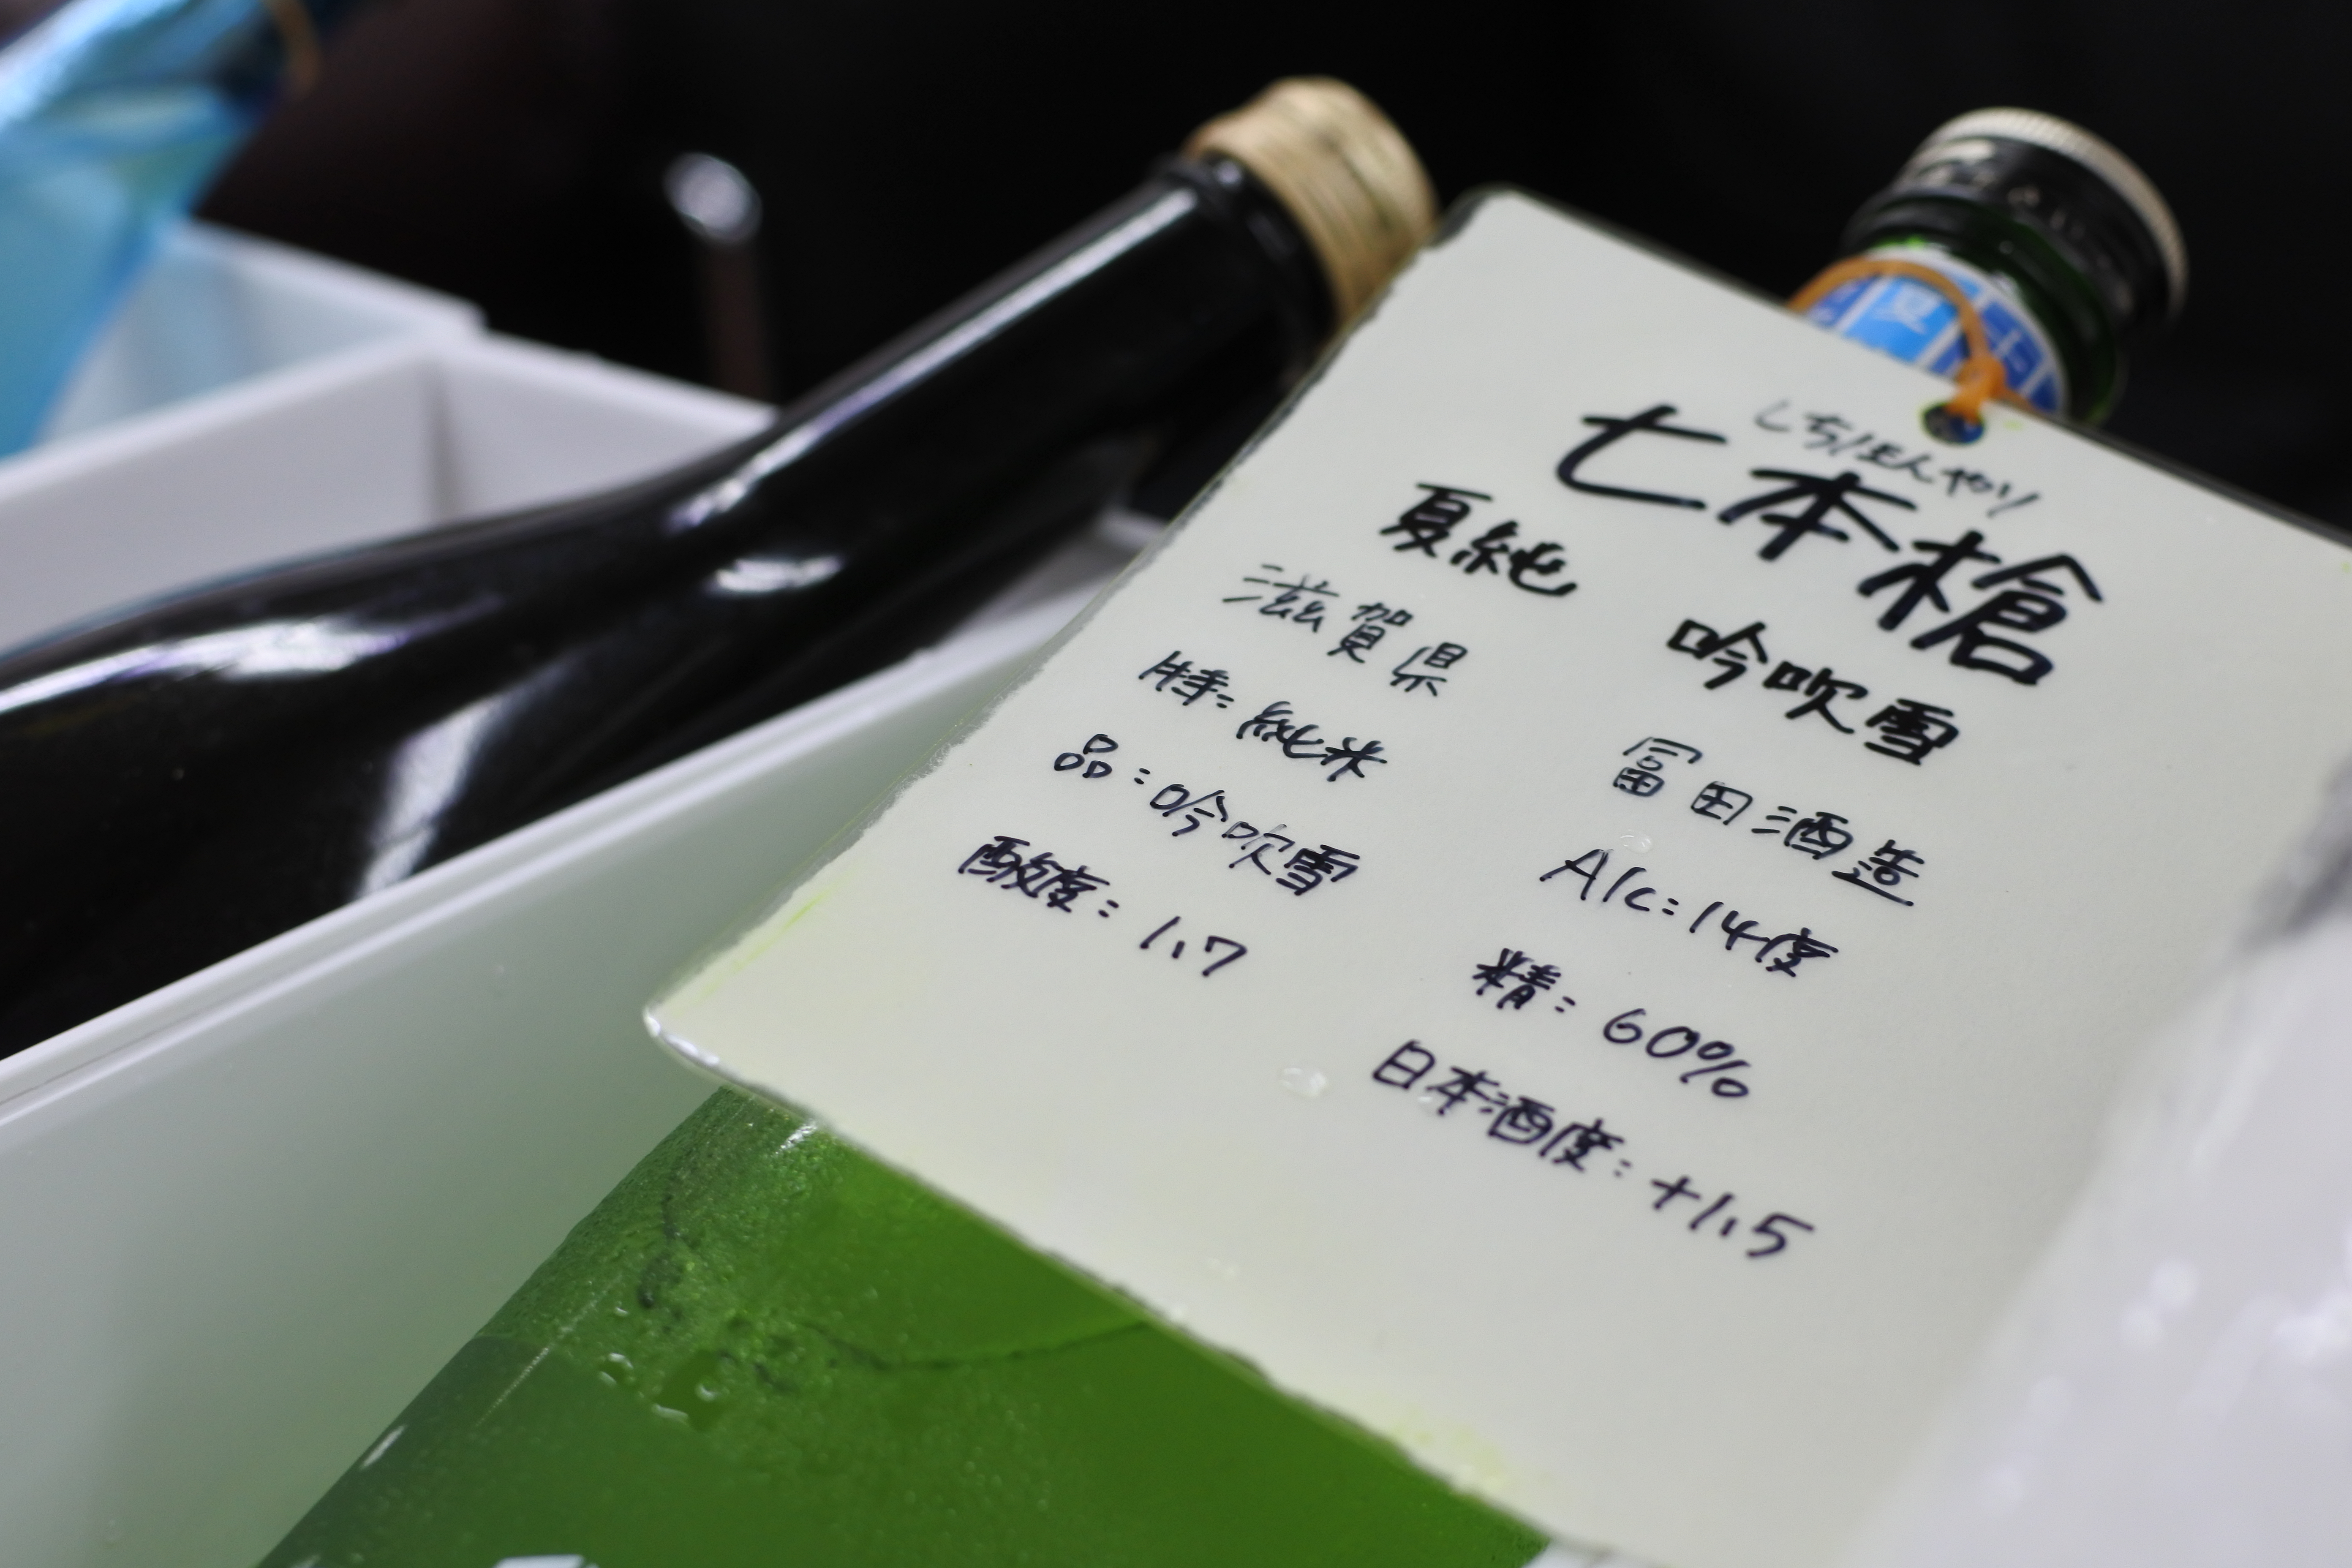 夏
しちほんやり
七本槍
夏純 吟吹雪
滋賀県 冨田酒造
特:純米 Alc:14度
品:吟吹雪 精:60%
酸度:1.7 日本酒度:+1.5